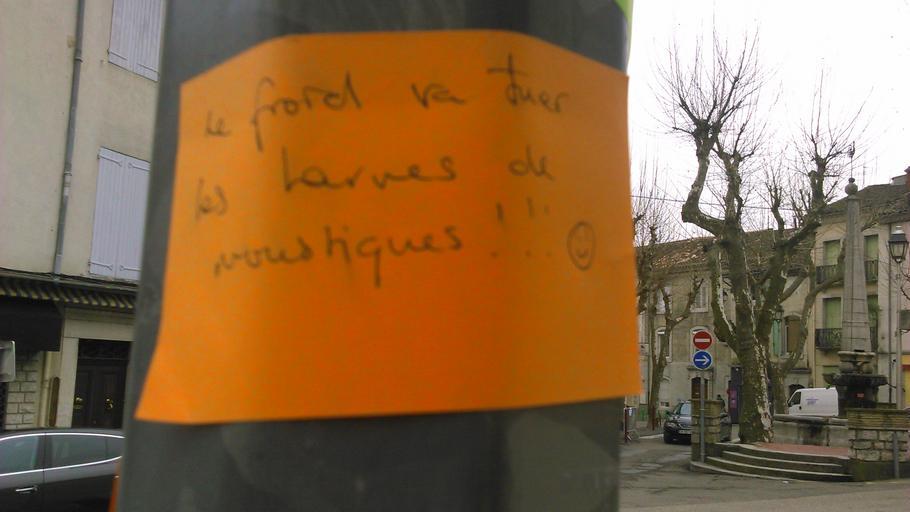 le froid va tuer
les larves de
moustiques !!! ☺